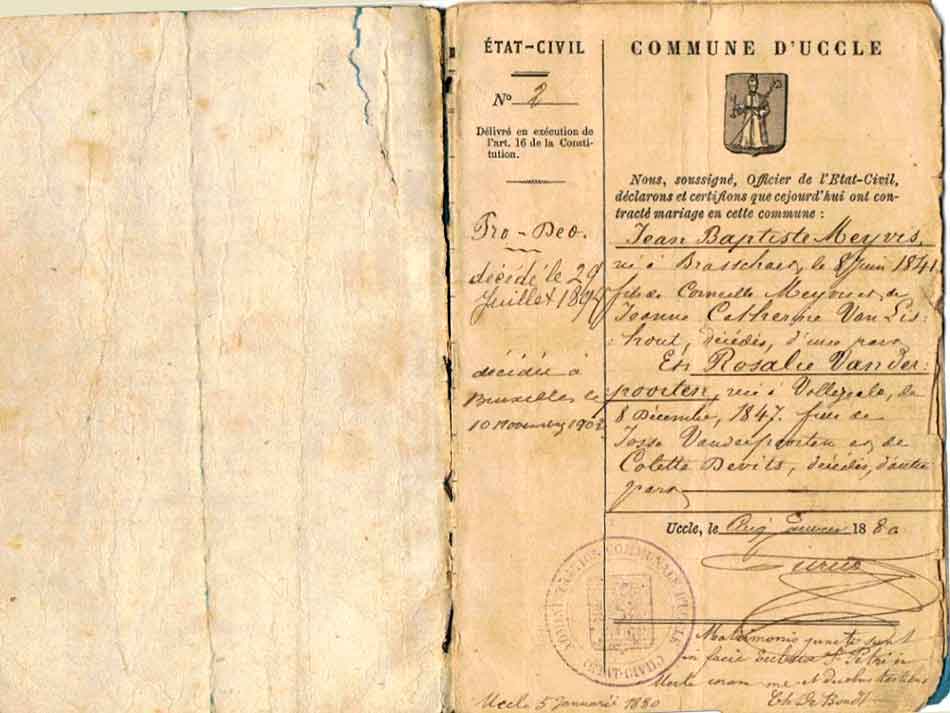 ÉTAT-CIVIL
N° 2
Délivré en exécution de
l'art. 16 de la Consti-
tution.
Pro-Deo.
décédé le 29
Juillet
décédée à
Bruxelles le
10 Novembre
COMMUNE D'UCCLE
Nous, soussigné, Officier de l'Etat-Civil,
déclarons et certifions que cejourd'hui ont con-
tracté mariage en cette commune :
Jean Baptiste Meyvis,
né à Brasschaet, le 8 Juin 1841,
fils de Corneille Meyvis et de
Jeanne Catherine Van Lis-
hout, décédés, d'une part
Et Rosalie Vander-
poorten, née à Vollezeele, le
8 Décembre, 1847. fille de
Josse Vanderpoorten et de
Colette Devits, décédés, d'autre
part
Uccle, le Cinq Janvier 1880
ADMINISTRATION COMMUNALE D'UCCLE
ETAT-CIVIL
Matrimonio juncti sunt
in facie Ecclesiae S. Petri in
Uccle coram me et duobus testibus
Uccle 5 Januarii 1880